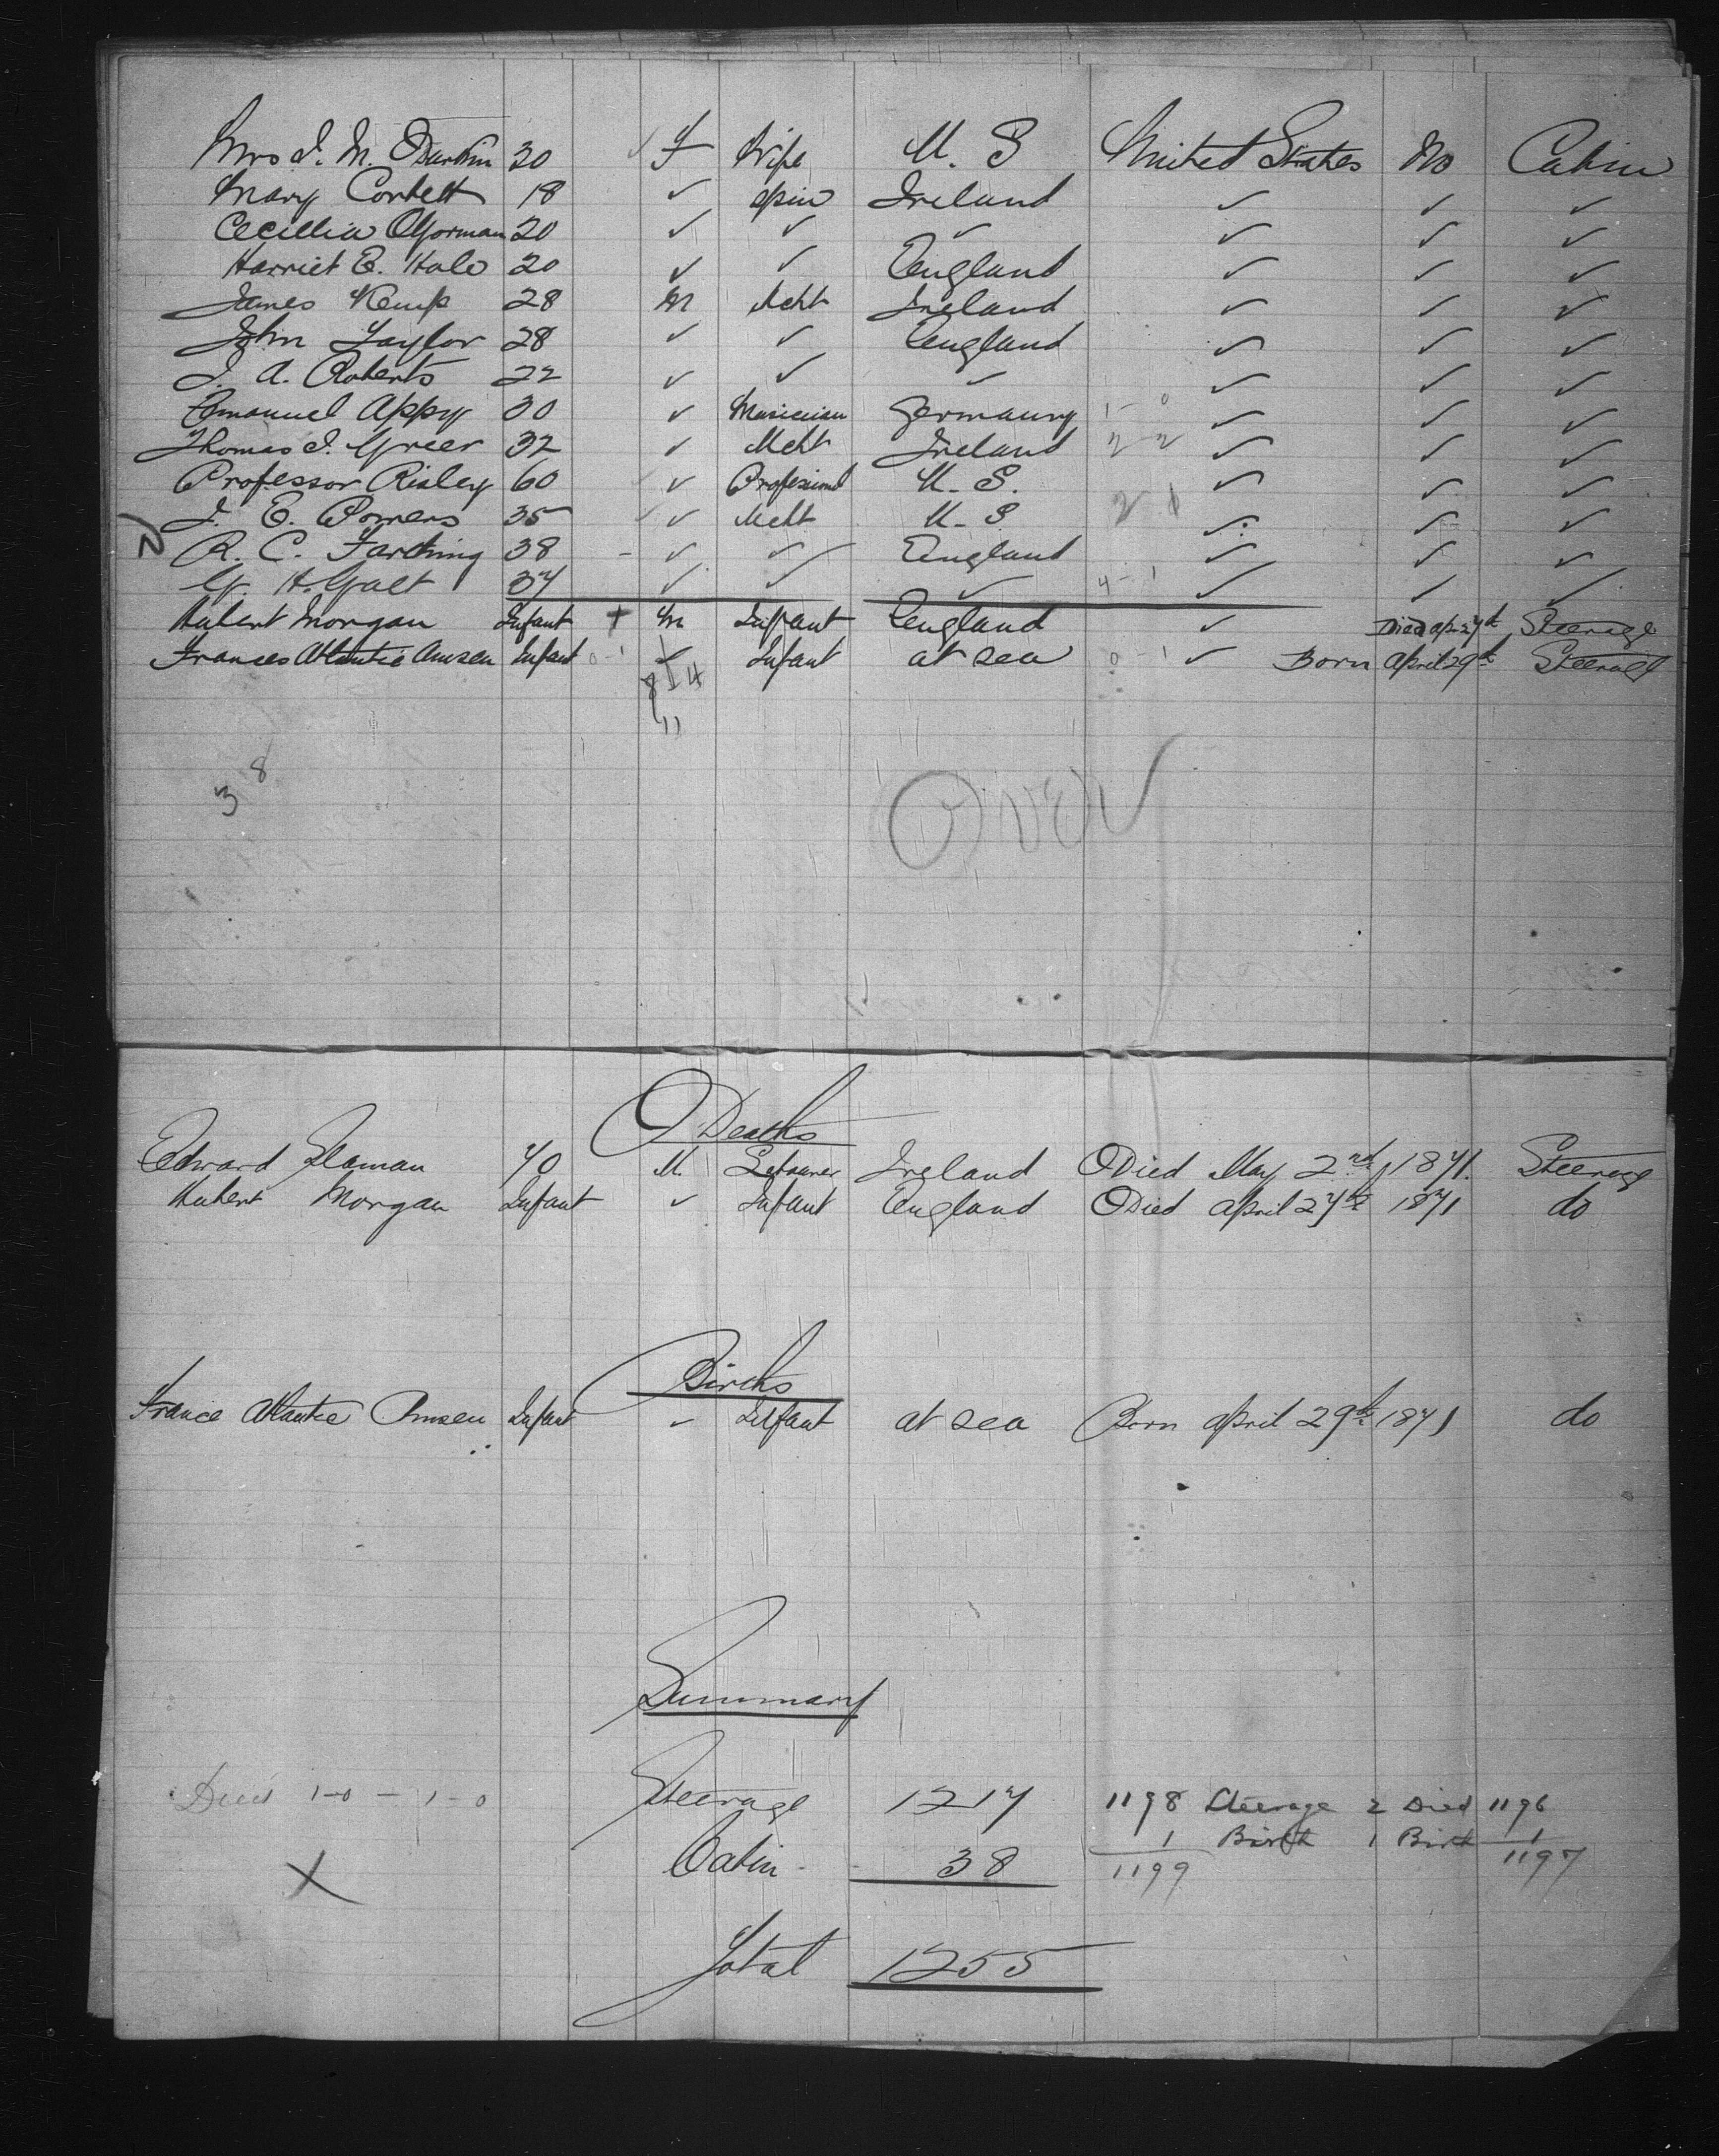 Mrs J. M. Durkin 30 ✓ F Wife U. S United States No Cabin
Mary Corbett 18 ✓ spin Ireland ✓ ✓ ✓
Cecillia OGorman 20 ✓ ✓ ✓ ✓ ✓ ✓
Harriet E. Hale 20 ✓ ✓ England ✓ ✓ ✓
James Kemp 28 M Mcht Ireland ✓ ✓ ✓
John Taylor 28 ✓ ✓ England ✓ ✓ ✓
J. A. Roberts 22 ✓ ✓ ✓ ✓ ✓ ✓
Emanuel Appy 30 ✓ Musician Germany 1-0 ✓ ✓ ✓
Thomas J. Greer 32 ✓ Mcht Ireland 2-2 ✓ ✓ ✓
Professor Risley 60 ✓ Professional U. S. ✓ ✓ ✓
J. E. Pomers 35 ✓ ✓ Mcht U. S 2 1 ✓ ✓ ✓
R. C. Farthing 38 - ✓ ✓ England ✓ ✓ ✓
G. H. Galt 37 ✓ ✓ ✓ 4-1 ✓ ✓ ✓
Hubert Morgan Infant + M Infant England ✓ Died Ap 27th Steerage
Frances Atlantic Amsen Infant 0-1 ✓ Infant at sea 0-1 ✓ Born April 29th Steerage
8 4
11
38
Over
Deaths
Edward 40 M. Labourer Ireland Died May 2nd 1871. Steerage
Hubert Morgan Infant ✓ Infant England Died April 27th 1871 do
Births
France Atlantic Amsen Infant ✓ Infant at sea Born April 29th 1871 do
Summary
Died 1-0 - 1-0 Steerage 1217 1198 Steerage 2 Died 1196
1 Birth 1 Birth 1
X Cabin - 38 1199 1197
Total 1255